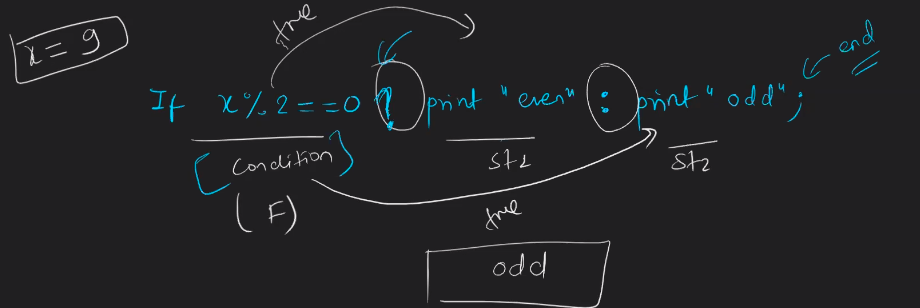 x = 9
true
end
If x%2==0 ? print "even" : print "odd" ;
[ Condition ]
st1
st2
(F)
true
odd